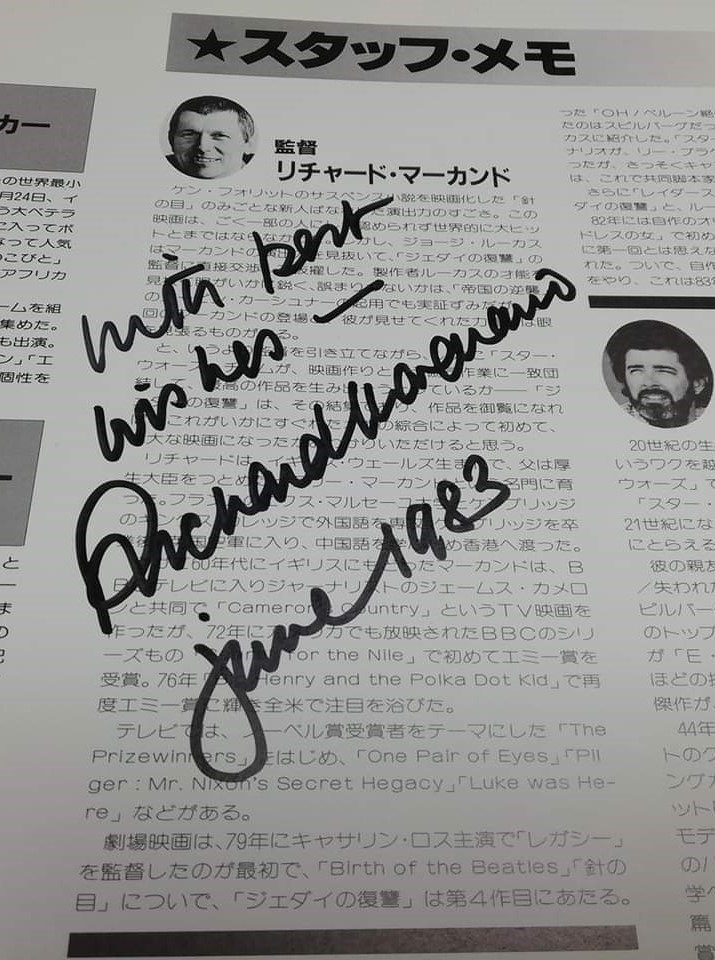 ★スタッフ・メモ
カー
の世界最小
月24日、イ
う大ベテラ
に入ってポ
なって人気
っこびと」
アフリカ
ームを組
集めた。
も出演。
ン」「エ
個性を
と
ま
の
監督
リチャード・マーカンド
ケン・フォリットのサスペンス小説を映画化した「針
の目」のみごとな新人ばな 演出力のすごさ。この
映画は、ごく一部の人に 認められず世界的に大ヒッ
トとまではならなか かし、ジョージ・ルーカス
はマーカンドの演出 を見抜いて、「ジェダイの復讐」の
監督に直接交渉 抜擢した。製作者ルーカスの才能を
見抜く眼がいかに鋭く、誤まり ないかは、「帝国の逆襲
カーシュナーの起用でも実証ずみだが
回の ーカンドの登場と 彼が見せてくれた力 は眼
を見張るものがある。
と、いうより 者を引き立てながら、 に「スター・
ウォーズ ームが、映画作りと 作業に一致団
結して、最高の作品を生み出 ているか——「ジ
の復讐」は、その結 あり、作品を御覧になれ
これがいかにすぐれた の綜合によって初めて、
大な映画になったか かりいただけると思う。
リチャードは、イギリス・ウェールズ生ま で、父は厚
生大臣をつとめ ー・マーカン 名門に育
った。フラン クス・マルセーユ ケンブリッジ
のキングス・カレッジで外国語を専攻 ブリッジを卒
軍に入り、中国語を学 め香港へ渡った。
60年代にイギリスにも ったマーカンドは、B
B テレビに入りジャーナリストのジェームス・カメロ
ンと共同で「Cameron Country」というTV映画を
作ったが、72年にアメリカでも放映されたBBCのシリ
ーズもの「 for the Nile」で初めてエミー賞を
受賞。76年「 Henry and the Polka Dot Kid」で再
度エミー賞に輝き全米で注目を浴びた。
テレビでは、ノーベル賞受賞者をテーマにした「The
Prizewinners」をはじめ、「One Pair of Eyes」「Pil
ger : Mr. Nixon's Secret Hegacy」「Luke was He-
re」などがある。
劇場映画は、79年にキャサリン・ロス主演で「レガシー」
を監督したのが最初で、「Birth of the Beatles」「針の
目」についで、「ジェダイの復讐」は第4作目にあたる。
with best
wishes —
Richard Marquand
june 1983
った「OH!ベルーン絶
たのはスピルバーグだっ
カスに紹介した。「スター
ナリオが、リー・ブラ
ったが、さっそくキャ
は、これで共同脚本家
さらに「レイダース
ダイの復讐」と、ルー
82年には自作のオリ
ドレスの女」で初め
に第一回とは思えな
れた。ついで、自作
をやり、これは83年
20世紀の生
いうワクを殺
ウォーズ」で
「スター・
21世紀にな
にとらえる
彼の親友
/失われた
ピルバー
のトップ
が「E・
ほどの招
傑作が
44年
トのク
ングカ
ットリ
モデ
の/
学べ
篇
賞